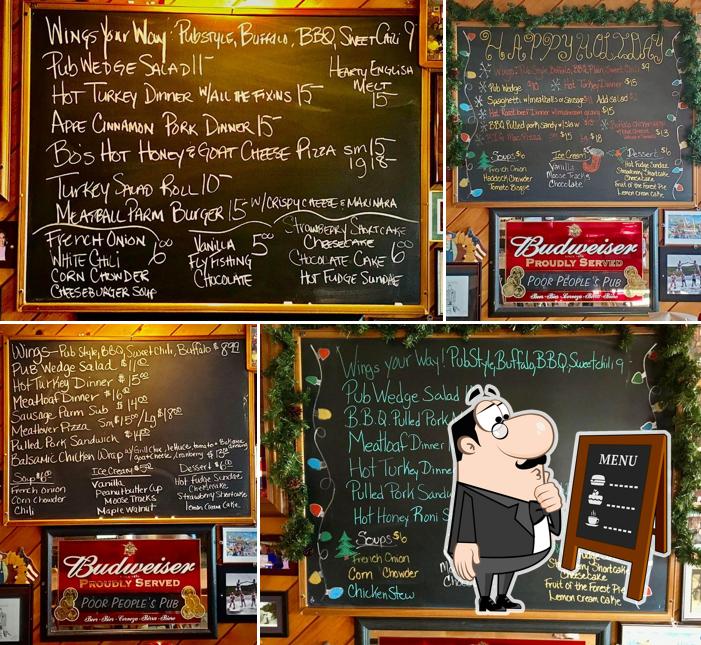 Wings Your Way: Pubstyle, Buffalo, BBQ, Sweet Chili 9
Pub Wedge Salad 11-
Hearty English
Melt
15-
Hot Turkey Dinner w/all the fixins 15-
Apple Cinnamon Pork Dinner 15-
Bo's Hot Honey & Goat Cheese Pizza sm 15-
lg 18-
Turkey Salad Roll 10-
Meatball Parm Burger 15 w/crispy cheese & marinara
French Onion
White Chili
Corn Chowder
Cheeseburger Soup
6.00
Vanilla
Fly Fishing
Chocolate
5.00
Strawberry Shortcake
Cheesecake
Chocolate Cake
Hot Fudge Sundae
6.00
HAPPY HOLIDAY
Wings: Pub Style, Buffalo, BBQ, Plain, Sweet Chili $9
Pub Wedge $10
Hot Turkey Dinner $15
Spaghetti w/meatballs or sausage
Add salad
Hot Roast Beef Dinner w/mushroom gravy $15
BBQ Pulled pork Sandy w/slaw
$13
Soups $6
French Onion
Haddock Chowder
Tomato Bisque
Ice Cream
Vanilla
Moose Tracks
Chocolate
Dessert $6
Hot Fudge Sundae
Strawberry Shortcake
Cheesecake
Fruit of the Forest Pie
Lemon cream Cake
Budweiser
PROUDLY SERVED
POOR PEOPLE'S PUB
Beer - Bier - Cerveza - Bière - Biiru
Wings - Pub Style, BBQ, Sweet Chili, Buffalo $8.99
Pub Wedge Salad $11.00
Hot Turkey Dinner $15.00
Meatloaf Dinner $16.00
Sausage Parm Sub $14.00
Meatlover Pizza Sm $15.00/Lg $18.00
Pulled Pork Sandwich $14.00
Balsamic Chicken Wrap w/Grill Chic, lettuce, tomato + Balsamic
goat cheese, cranberry $13.00
Soup $6.00
French Onion
Corn Chowder
Chili
Ice Cream $5.00
Vanilla
Peanutbutter Cup
Moose Tracks
Maple Walnut
Dessert $6.00
Hot Fudge Sundae
Cheesecake
Strawberry Shortcake
Lemon Cream Cake
Budweiser
PROUDLY SERVED
POOR PEOPLE'S PUB
Beer - Bier - Cerveza - Bière - Biiru
Wings your Way! PubStyle, Buffalo, B.B.Q, Sweet chili 9-
Pub Wedge Salad
B.B.Q. Pulled Pork
Meatloaf Dinner
Hot Turkey Dinne
Pulled Pork Sandw
Hot Honey Roni
Soups $6
French Onion
Corn Chowder
Chicken Stew
Cheesecake
Fruit of the Forest Pie
Lemon cream Cake
MENU